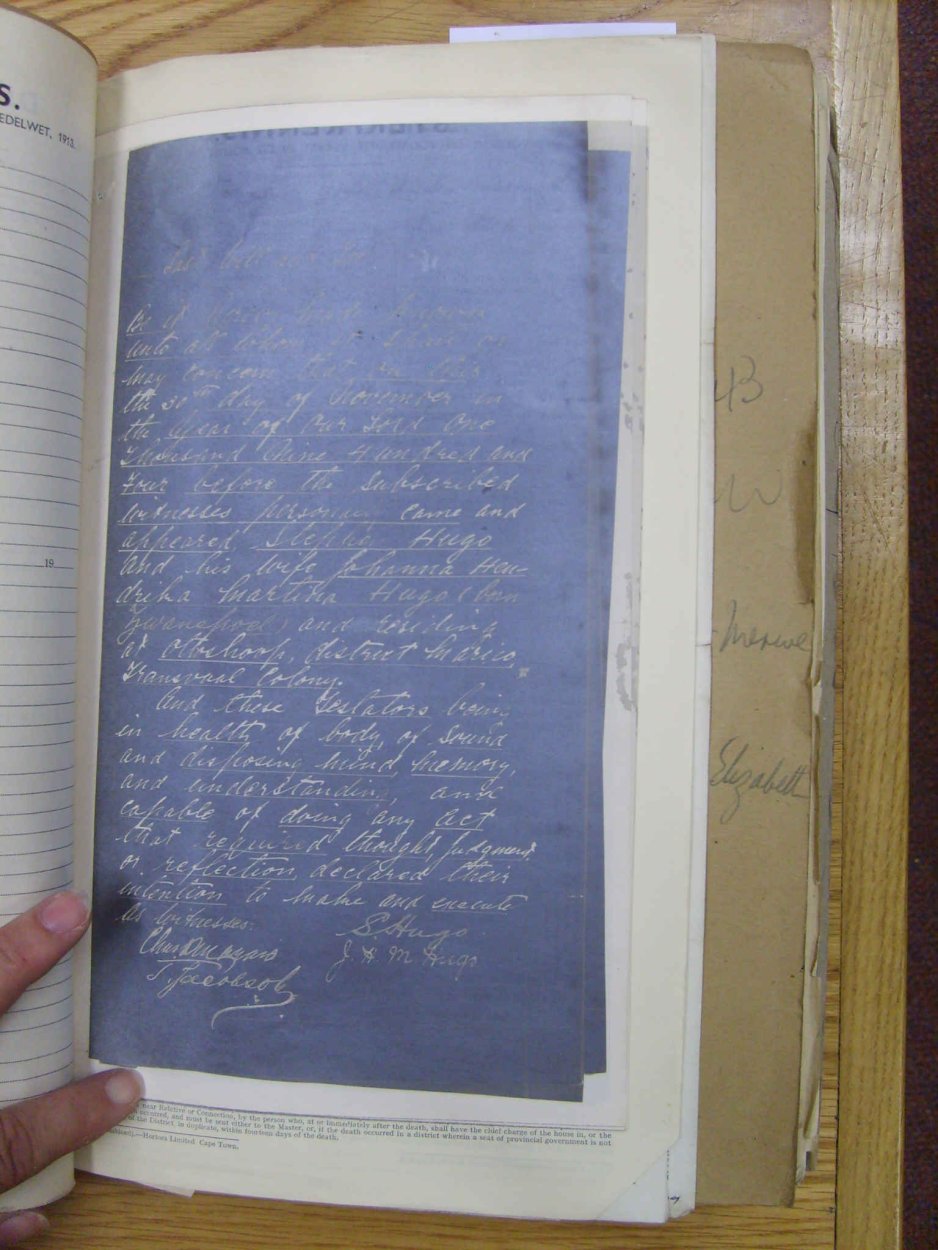 S.
EDELWET, 1913.
19
Last Will and
Be it hereby made known
unto all whom it shall or
may concern that on this
the 30th day of November in
the Year of Our Lord One
Thousand Nine Hundred and
Four before the subscribed
witnesses personally came and
appeared Stephs Hugo
and his wife Johanna Hen-
drika Martina Hugo (born
Swanepoel) and residing
at Ottoshoop, district Marico,
Transvaal Colony.
And these Testators being
in health of body, of sound
and disposing mind, memory,
and understanding, and
capable of doing any act
that required thought, judgment
or reflection, declared their
intention to make and execute
As witnesses:
S. Hugo
J H M Hugo
T. Jacobsohn
near Relative or Connection, by the person who, at or immediately after the death, shall have the chief charge of the house in, or the
occurred, and must be sent either to the Master, or, if the death occurred in a district wherein a seat of provincial government is not
of the District, in duplicate, within fourteen days of the death.
—Hortors Limited Cape Town.
43
W
Merwe
Elizabeth